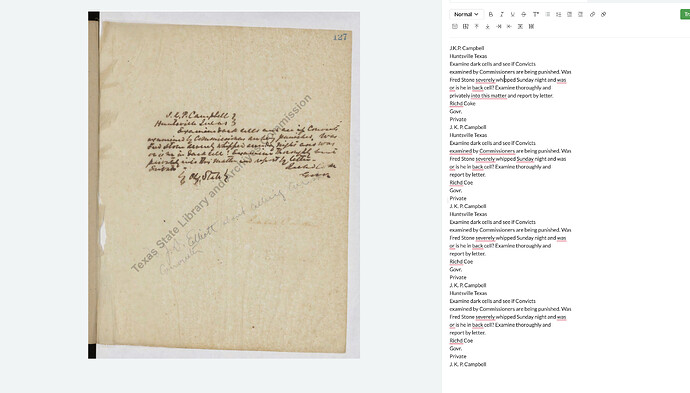 Normal
B I U S
127
J. K. P. Campbell
Huntsville Texas
Examine dark cells and see if Convicts
examined by Commissioners are being punished. Was
Fred Stone severely whipped Sunday night and was
or is he in back cell? Examine thoroughly and
privately into this matter and report by letter.
Richd Coke
Govr.
Private
Texas State Library and Archives Commission
J.K.P. Campbell
Huntsville Texas
Examine dark cells and see if Convicts
examined by Commissioners are being punished. Was
Fred Stone severely whipped Sunday night and was
or is he in back cell? Examine thoroughly and
privately into this matter and report by letter.
Richd Coke
Govr.
Private
J. K. P. Campbell
Huntsville Texas
Examine dark cells and see if Convicts
examined by Commissioners are being punished. Was
Fred Stone severely whipped Sunday night and was
or is he in back cell? Examine thoroughly and
report by letter.
Richd Coe
Govr.
Private
J. K. P. Campbell
Huntsville Texas
Examine dark cells and see if Convicts
examined by Commissioners are being punished. Was
Fred Stone severely whipped Sunday night and was
or is he in back cell? Examine thoroughly and
report by letter.
Richd Coe
Govr.
Private
J. K. P. Campbell
Huntsville Texas
Examine dark cells and see if Convicts
examined by Commissioners are being punished. Was
Fred Stone severely whipped Sunday night and was
or is he in back cell? Examine thoroughly and
report by letter.
Richd Coe
Govr.
Private
J. K. P. Campbell